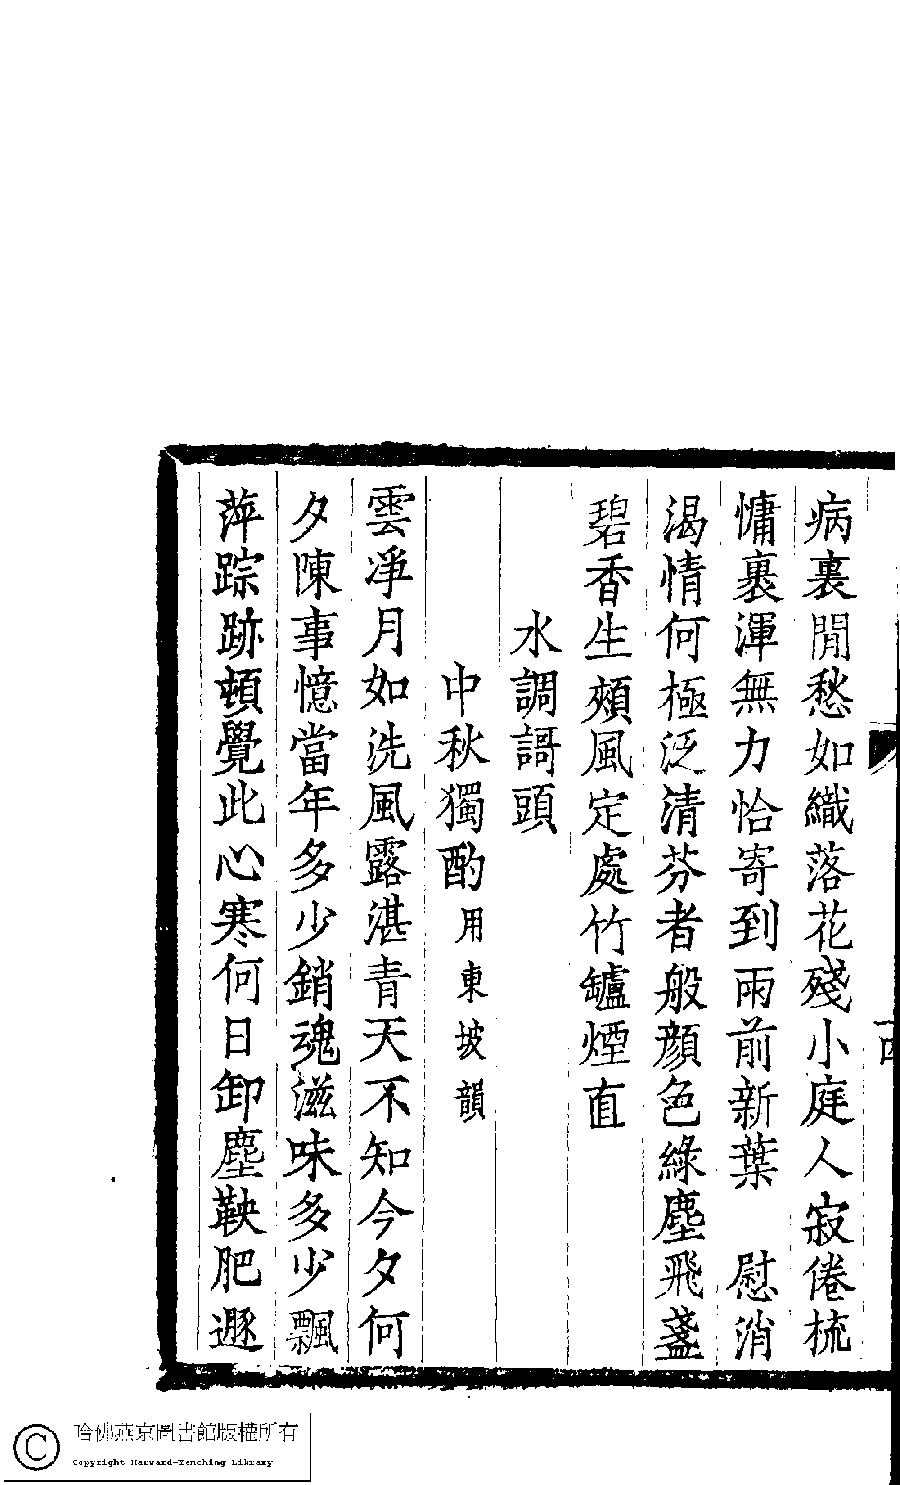 病裏閒愁如織落花殘小庭人寂倦梳
慵裹渾無力恰寄到雨前新葉　慰消
渴情何極泛清芬者般顏色綠塵飛盞
碧香生頰風定處竹罏煙直
水調謌頭
中秋獨酌用東坡韻
雲凈月如洗風露湛青天不知今夕何
夕陳事憶當年多少銷魂滋味多少飄
萍踪跡頓覺此心寒何日卸塵鞅肥遯
哈佛燕京圖書館版權所有
Copyright Harvard-Yenching Library